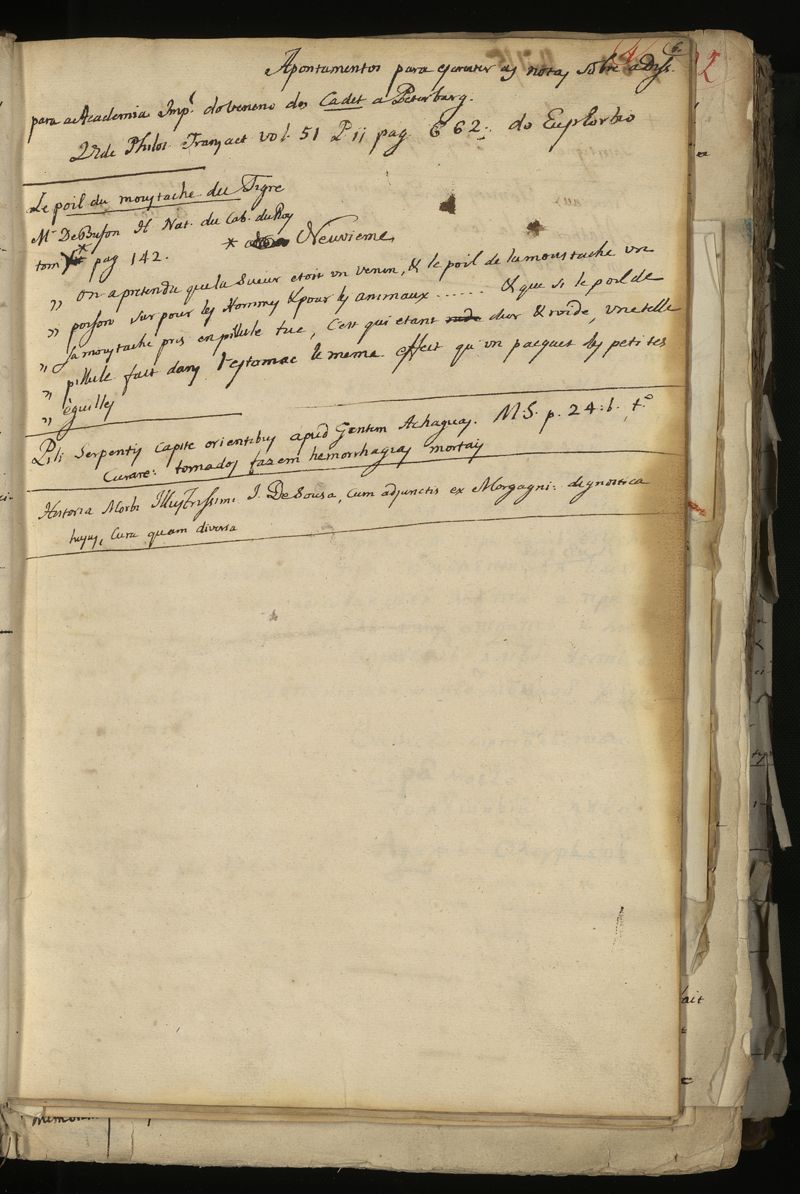 6.
Apontamentos para escrever as notas sobre a Diss.
para a Academia Imp.l do veneno dos Cadet a Peterburg.
Vide Philos Transact vol. 51 P ii pag 662. do Euphorbio
Le poil du moustache du Tigre
Mr De Bufon H Nat. du Cab. du Roy
tom * pag 142. * Neuvieme
" On a pretendu que la Sueur etoit un venin, & le poil de la moustache un
" poison sur pour les Hommes & pour les animaux ...... & que si le poil de
" sa moustache pris en pillule tue, C'est qui etant dur & roide, une telle
" pillule fait dans l'estomac le meme effect qu'un pacquet des petites
" éguilles
Pili Serpentis capite orientibus apud Gentem Achaguas. M.S. p. 24. b. t.o
Curare: tomados fazem hemorrhagias mortais
Historia Morbi Illustrissimi I. De Sousa, cum adjunctis ex Morgagni: dignostica
hujus, Cura quam diversa